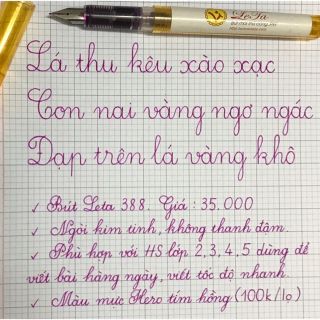 LeTa
Lá thu kêu xào xạc
Con nai vàng ngơ ngác
Đạp trên lá vàng khô
✓ Bút Leta 388. Giá : 35.000
✓ Ngòi kim tinh, không thanh đậm.
✓ Phù hợp với HS lớp 2, 3, 4, 5 dùng để
viết bài hàng ngày, viết tốc độ nhanh.
✓ Màu mực Hero tím hồng (100k/lọ)